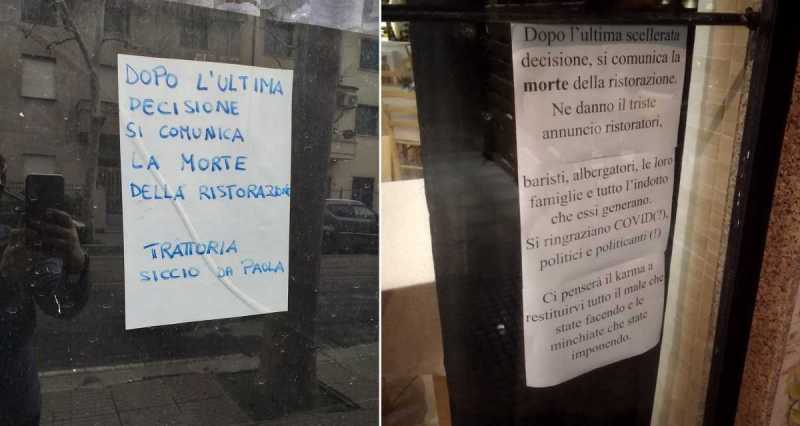 DOPO L'ULTIMA
DECISIONE
SI COMUNICA
LA MORTE
DELLA RISTORAZIONE
TRATTORIA
SICCIO DA PAOLA
Dopo l'ultima scellerata
decisione, si comunica la
morte della ristorazione.
Ne danno il triste
annuncio ristoratori,
baristi, albergatori, le loro
famiglie e tutto l'indotto
che essi generano.
Si ringraziano COVID(?),
politici e politicanti (!)
Ci penserà il karma a
restituirvi tutto il male che
state facendo e le
minchiate che state
imponendo.